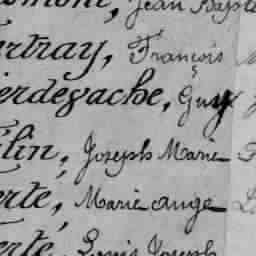 Jean Baptis
rtray, François
erdegache, Guy
lin, Joseph Marie
erté, Marie ange
erté, Louis Joseph